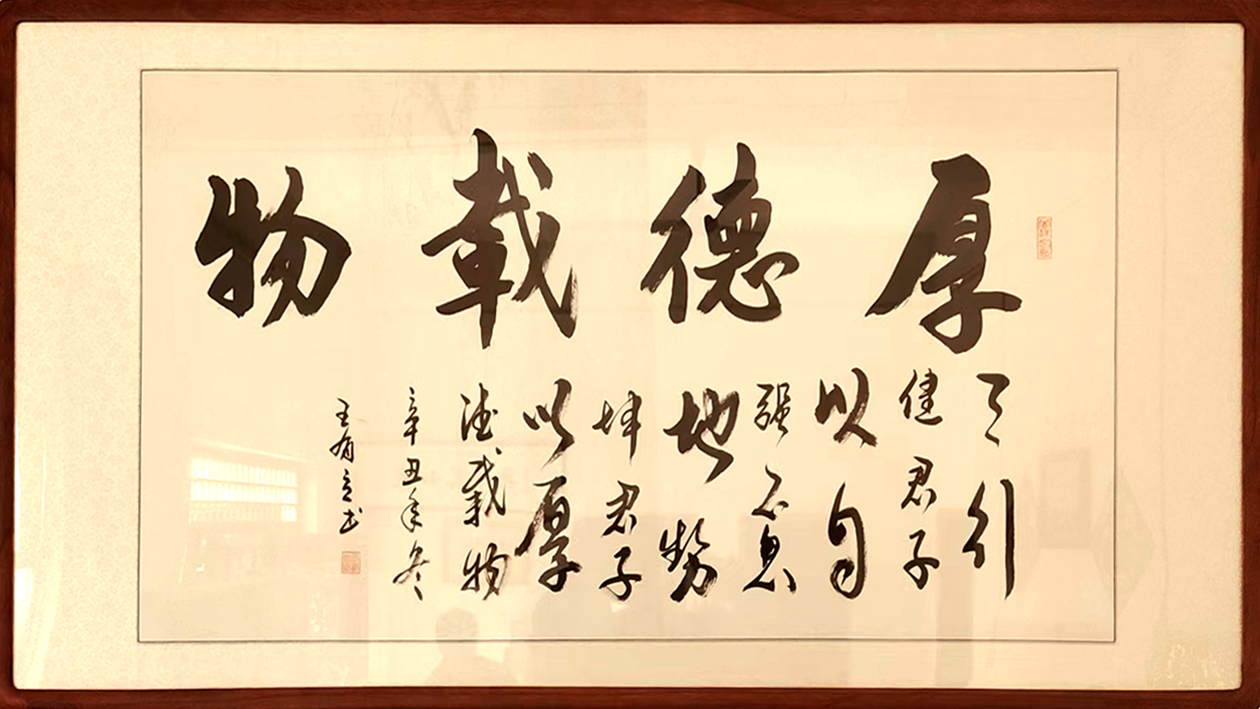 厚德載物
天行
健君子
以自
强不息
地勢
坤君子
以厚
德载物
辛丑年冬
王有立书